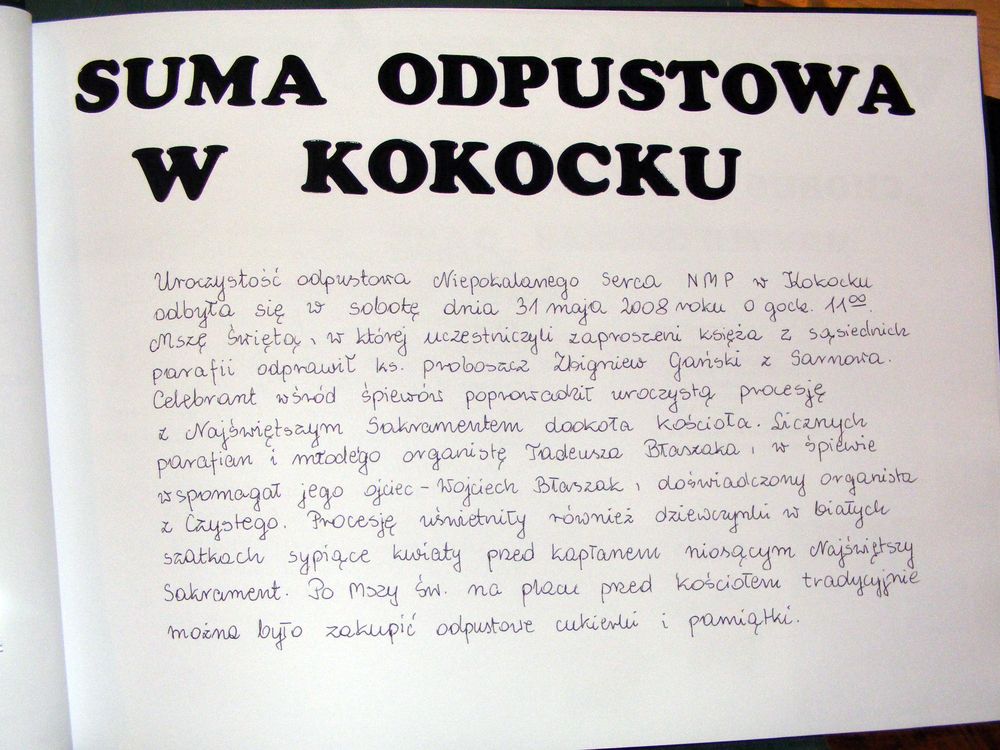 SUMA ODPUSTOWA
W KOKOCKU
Uroczystość odpustowa Niepokalanego Serca NMP w Kokocku
odbyła się w sobotę dnia 31 maja 2008 roku o godz. 11⁰⁰.
Mszę Świętą, w której uczestniczyli zaproszeni księża z sąsiednich
parafii odprawił ks. proboszcz Zbigniew Gański z Sarnowa.
Celebrant wśród śpiewów poprowadził uroczystą procesję
z Najświętszym Sakramentem dookoła kościoła. Licznych
parafian i młodego organistę Tadeusza Błaszaka, w śpiewie
wspomagał jego ojciec - Wojciech Błaszak, doświadczony organista
z Czystego. Procesję uświetniły również dziewczynki w białych
szatkach sypiące kwiaty przed kapłanem niosącym Najświętszy
Sakrament. Po Mszy Św. na placu przed kościołem tradycyjnie
można było zakupić odpustowe cukierki i pamiątki.